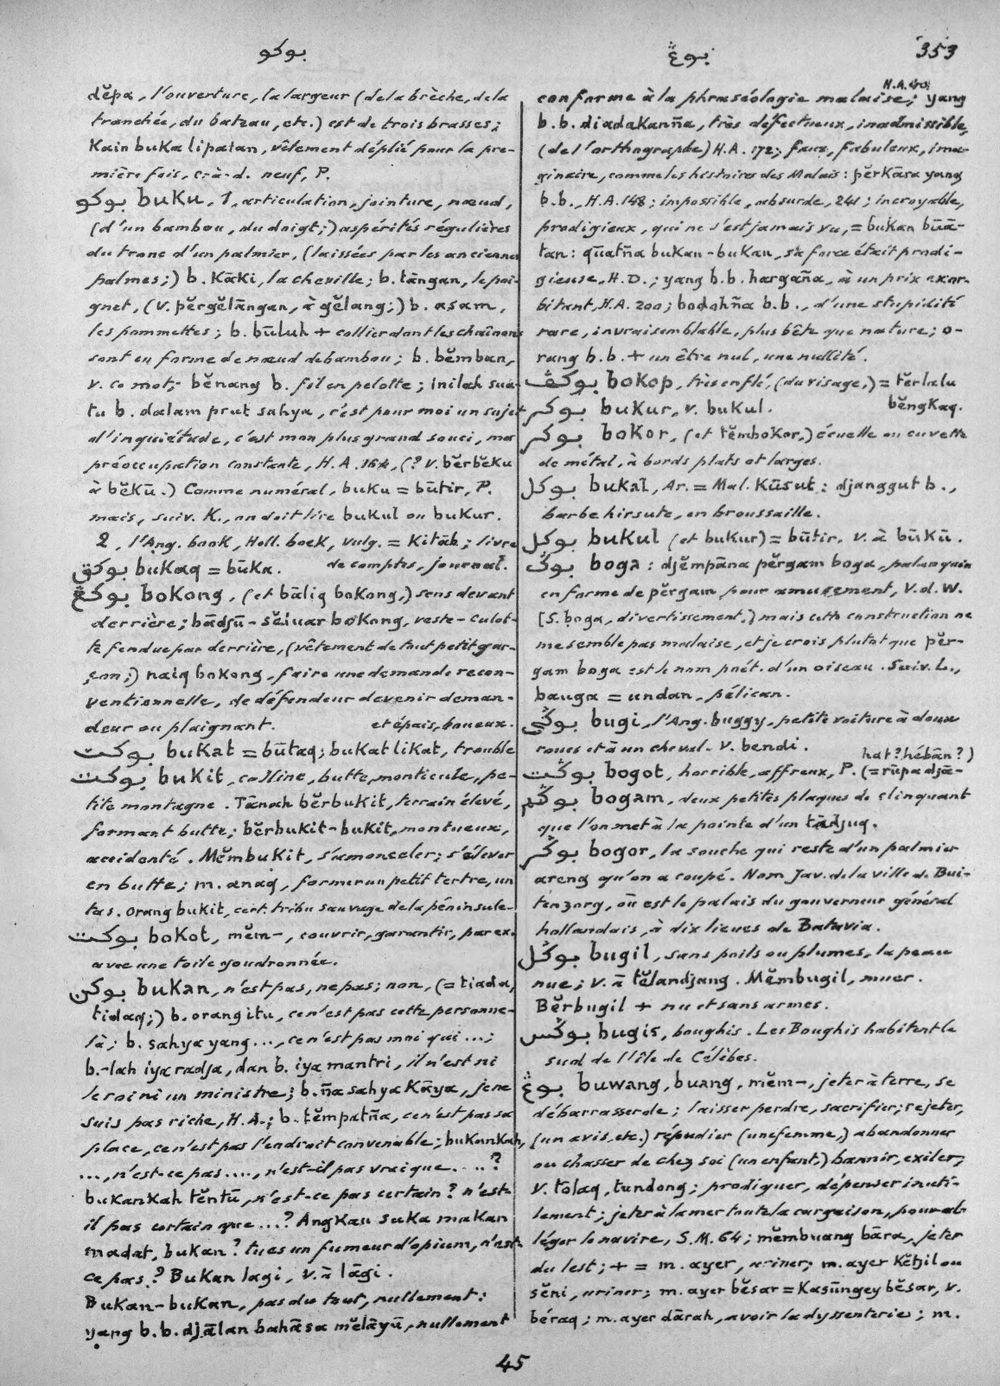 بوكو
بوڠ
353
dĕpa, l'ouverture, la largeur (de la brèche, de la
tranchée, du bateau, etc.) est de trois brasses;
Kain buka lipatan, vêtement déplié pour la pre-
mière fois, c-à-d. neuf, P.
بوكو buku, 1, articulation, jointure, nœud,
(d'un bambou, du doigt;) aspérités régulières
du tronc d'un palmier, (laissées par les anciennes
palmes;) b. Kāki, la cheville; b. tāngan, le poi-
gnet, (v. pĕrgĕlāngan, à gĕlang;) b. asam,
les pommettes; b. būluh + collier dont les chaînons
sont en forme de nœud de bambou; b. bĕmban,
v. ce mot; bĕnang b. fil en pelotte; Inilah sua-
tu b. dalam prut sahya, c'est pour moi un sujet
d'inquiétude, c'est mon plus grand souci, ma
préoccupation constante, H.A. 164, (? v. bĕrbĕku
à bĕkū.) Comme numéral, buku = būtir, P.
mais, suiv. K., on doit lire bukul ou bukur.
2, l'Ang. book, Holl. boek, vulg. = Kitāb; livre
de comptes, journal.
بوكق bukaq = būka.
بوكڠ bokong, (et bāliq bokong,) sens devant
derrière; bādjū-sĕluar bokong, veste-culot-
te fendue par derrière, (vêtement de tout petit gar-
çon;) naiq bokong, faire une demande recon-
ventionnelle, de défendeur devenir deman-
deur ou plaignant.
et épais, boueux.
بوكت bukat = būtaq; bukat likat, trouble
بوكت bukit, colline, butte, monticule, pe-
tite montagne. Tānah bĕrbukit, terrain élevé,
formant butte; bĕrbukit-bukit, montueux,
accidenté. Mĕmbukit, s'amonceler; s'élever
en butte; m. anaq, former un petit tertre, un
tas. orang bukit, cert. tribu sauvage de la péninsule.
بوكت bokot, mĕm-, couvrir, garantir, par ex.
avec une toile goudronnée.
بوكن bukan, n'est pas, ne pas; non, (= tiada,
tidaq;) b. orang itu, ce n'est pas cette personne-
là; b. sahya yang ..., ce n'est pas moi qui ...;
b.-lah iya radja, dan b. iya mantri, il n'est ni
le roi ni un ministre; b. ña sahya Kāya, je ne
suis pas riche, H.A.; b. tĕmpatña, ce n'est pas sa
place, ce n'est pas l'endroit convenable; bukankah,
..., n'est-ce pas ..., n'est-il pas vrai que ....?
bukankah tĕntū, n'est-ce pas certain? n'est-
il pas certain que ...? Angkau suka makan
madat, bukan? tu es un fumeur d'opium, n'est-
ce pas? Bukan lagi, v. à lāgi.
Bukan-bukan, pas du tout, nullement:
yang b. b. djālan bahāsa mĕlāyū, nullement
H.A. 40
conforme à la phraséologie malaise; yang
b. b. diadakanña, très défectueux, inadmissible,
(de l'orthographe) H.A. 172; faux, fabuleux, ima-
ginaire, comme les histoires des Malais: pĕrkāra yang
b. b., H.A. 148; impossible, absurde, 241; incroyable,
prodigieux, qui ne s'est jamais vu, = bukan būā-
tan: qūatña bukan-bukan, sa force était prodi-
gieuse, H.D.; yang b. b. hargaña, à un prix exor-
bitant, H.A. 200; bodohña b. b., d'une stupidité
rare, invraisemblable, plus bête que nature; o-
rang b. b. + un être nul, une nullité.
بوكڤ bokop, très enflé, (du visage,) = tĕrlalu
bĕngkaq.
بوكر bukur, v. bukul.
بوكر bokor, (et tĕmbokor,) écuelle ou cuvette
de métal, à bords plats et larges.
بوكل bukal, Ar. = Mal. Kūsut: djanggut b.,
barbe hirsute, en broussaille.
بوكل bukul (et bukur) = būtir. v. à būkū.
بوݢ boga: djĕmpāna pĕrgam boga, palanquin
en forme de pĕrgam, pour amusement, V. d. W.
[S. boga, divertissement,) mais cette construction ne
me semble pas malaise, et je crois plutôt que pĕr-
gam boga est le nom poét. d'un oiseau. Suiv. L.,
bauga = undan, pélican.
بوݢي bugi, l'Ang. buggy, petite voiture à deux
roues et à un cheval. v. bendi.
hat? hébān?)
بوݢت bogot, horrible, affreux, P. (= rūpa djā-
بوݢم bogam, deux petites plaques de clinquant
que l'on met à la pointe d'un tādjuq.
بوݢر bogor, la souche qui reste d'un palmier
areng qu'on a coupé. Nom Jav. de la ville de Bui-
tenzorg, où est le palais du gouverneur général
hollandais, à dix lieues de Batavia.
بوݢل bugil, sans poils ou plumes, la peau
nue; v. à tĕlandjang. Mĕmbugil, muer.
Bĕrbugil + nu et sans armes.
بوݢس bugis, boughis. Les Boughis habitent le
sud de l'île de Célèbes.
بوڠ buwang, buang, mĕm-, jeter à terre, se
débarrasser de; laisser perdre, sacrifier; rejeter,
(un avis, etc.) répudier (une femme,) abandonner
ou chasser de chez soi (un enfant,) bannir, exiler;
v. tolaq, tundong; prodiguer, dépenser inuti-
lement; jeter à la mer toute la cargaison, pour al-
léger le navire, S.M. 64; mĕmbuang bāra, jeter
du lest; + = m. ayer, uriner; m. ayer Kĕtjil ou
sĕni, uriner; m. ayer bĕsar = Kasūngey bĕsar, v.
béraq; m. ayer dārah, avoir la dyssenterie; m.
45